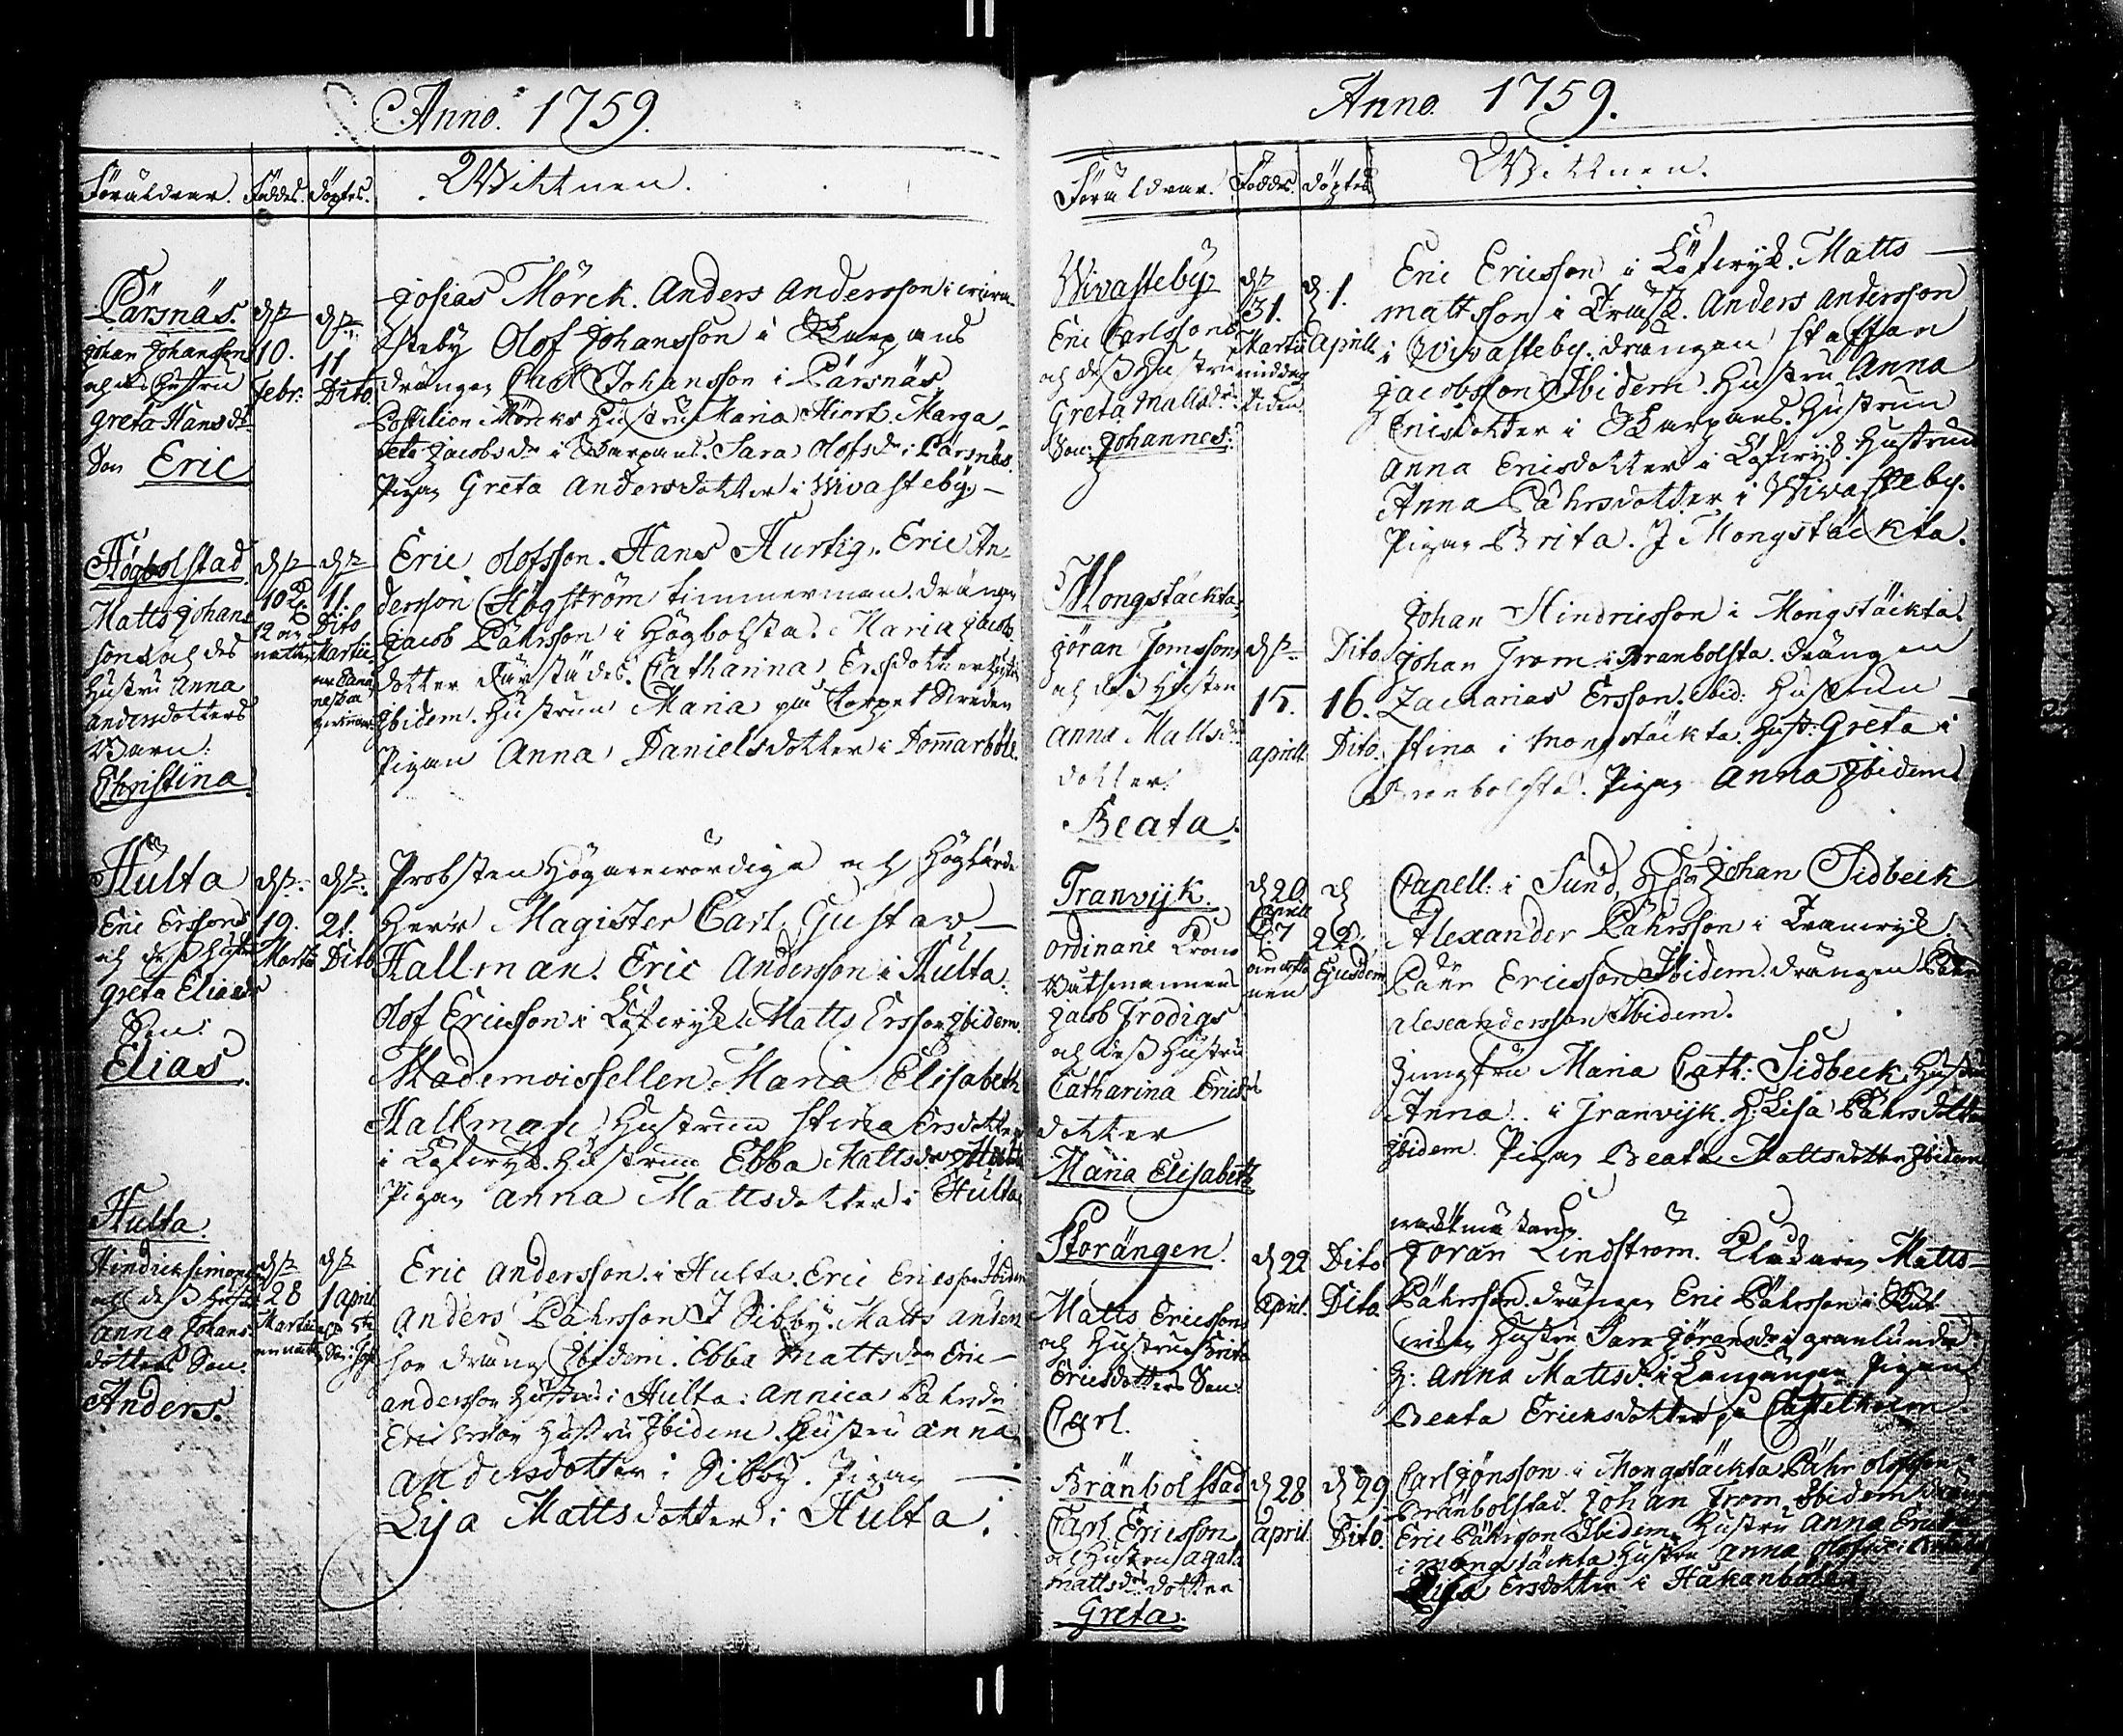 Anno. 1759.
Föräldrar. Föddes. Döptes. Wittnen.
Pärsnäs.
Johan Johansson
och des hustru
Greta Hansdr
Son Eric
d
10.
Febr:
d
11
Dito.
Josias Mörck. Anders Andersson i
Olof Johansson i Skarpans
drängen Johansson i Pärsnäs
Postilion Mörcks Hustru Maria Hiort. Marga-
reta Jacobsdr i Skarpans. Sara Olofsdr i Pärsnäs.
Pigan Greta Andersdotter i Wivasteby. —
Högbolstad
Matts Johans
son och des
Hustru Anna
Andersdotters
Barn:
Christina
d
10
12 om
natten
d
11.
Dito
Martii
Eric Olofsson. Hans Hurtig. Eric An-
dersson Högström timmerman. drängen
Jacob Pährsson i Högbolsta. Maria Jacobs
dotter därstädes. Catharina Ersdotter
Ibidem. Hustrun Maria på Torpet
Pigan Anna Danielsdotter i Domarböle.
Hulta
Eric Erssons
och dess hustru
Greta Eliædr
Son:
Elias
d
19.
Martii
d
21.
Dito
Probsten Högärewördige och Höglärde
Herr Magister Carl Gustav —
Hallman. Eric Andersson i Hulta.
Olof Ericsson i Matts Ersson Ibidem.
Mademoissellen Maria Elisabeth
Hallman Hustrun Stina Ersdotter
i Hustrun Ebba Mattsdr i Hulta
Pigan Anna Mattsdotter i Hulta
Hulta.
Hindric Simons
och dess Hustru
Anna Johans
dotters Son.
Anders.
d
28
Martii
d
1 april
Eric Andersson i Hulta. Eric Ericsson Ibidem
Anders Pährsson I Sibby. Matts Anders
son dräng Ibidem. Ebba Mattsdr Eric
Andersson hustru i Hulta: Annica Pährsdr
Eric Hustru Ibidem. Hustru Anna
Andersdotter i Sibby. Pigan —
Lisa Mattsdotter i Hulta.
Anno. 1759.
Föräldrar. Föddes. Döptes. Wittnen.
Wivasteby
Eric Carlssons
och dess Hustru
Greta Mattsdr
Son: Johannes:
d
31.
Martii
middags
tiden
d. 1.
Aprill
Eric Ericsson i Matts —
Mattsson i Träsk. Anders Andersson
i Wivasteby. drängen Staffan
Jacobsson Ibidem. Hustru Anna
Ericsdotter i Skarpans. Hustrun
Anna Ericsdotter i Hustrun
Anna Pährsdotter i Wivasteby.
Pigan Brita. I Mongstäckta.
Mongstäckta
Jöran Jomssons
och dess Hustru
Anna Mattsdr
dotter:
Beata.
d
15.
aprill
Dito
16.
Dito.
Johan Hindricsson i Mongstäckta.
Johan From i Bränbolsta. Drängen
Zacharias Ersson. Ibid: Hustrun —
Stina i Mongstäckta. Hust: Greta i
Bränbolsta. Pigan Anna Ibidem
Tranvijk.
Ordinarie
Båtsmannen
Jacob Frodigs
och dess Hustru
Catharina Erics
dotter
Maria Elisabeth
d 20
Aprill
d
22.
Ejusdem
Capell: i Sund Johan Sidbeck
Alexander Pährsson i
Pähr Ericsson Ibidem. drängen Pähr
Alexandersson Ibidem.
Jungfru Maria Cath: Sidbeck. Hustru
Anna i Tranvijk. H: Lisa Pährsdotter
Ibidem. Pigan Beata Mattsdotter Ibidem
Storängen.
Matts Ericssons
och Hustru Brita
Ericsdotters Son:
Carl.
d 22
April.
Dito
Dito.
Jöran Lindström. Matts —
Pährsson. drängen Eric Pährsson i
Hustru Sara Jöransdr i Granlunda
H: Anna Mattsdr i Pigan
Beata Ericksdotter på Castelholm
Bränbolstad
Carl Ericsson
och Hustru Agata
Mattsdr dotter
Greta.
d 28
April
d 29
Dito.
Carl Jönsson i Mongstäckta Pähr Olofsson i
Bränbolstad. Johan From. Ibidem
Eric Pährsson Ibidem. Hustru Anna
i Mongstäckta. Hustru Anna
Lisa Ersdotter i Håkanböle